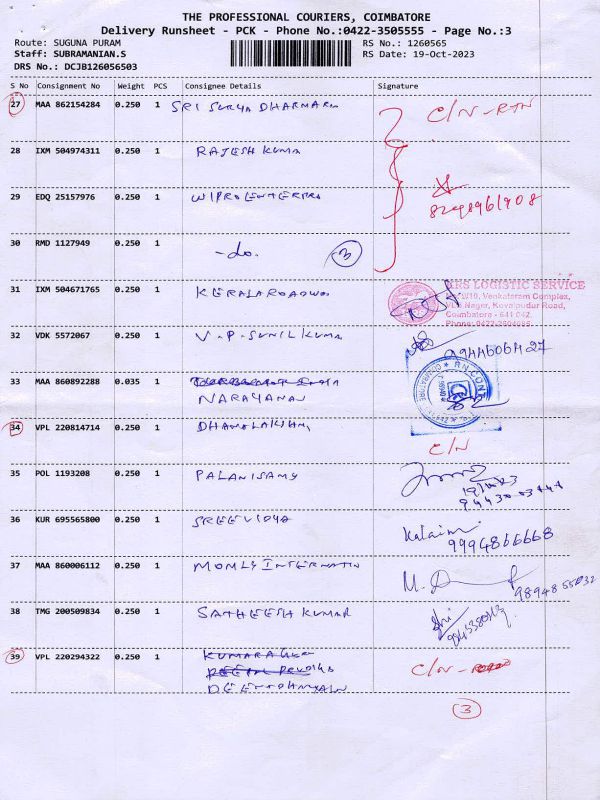 THE PROFESSIONAL COURIERS, COIMBATORE
Delivery Runsheet - PCK - Phone No.:0422-3505555 - Page No.:3
Route: SUGUNA PURAM RS No.: 1260565
Staff: SUBRAMANIAN.S RS Date: 19-Oct-2023
DRS No.: DCJB126056503
S No Consignment No Weight PCS Consignee Details Signature
27 MAA 862154284 0.250 1 SRI SURYA C/N - RTN
28 IXM 504974311 0.250 1 RAJESH KUMA
29 EDQ 25157976 0.250 1
30 RMD 1127949 0.250 1 -do. 3
31 IXM 504671765 0.250 1 LOGISTIC SERVICE
Venkateram Complex,
Nagar, Kovaipudur Road,
Coimbatore - 641 042.
32 VDK 5572067 0.250 1 V.P. SUNIL KUMA
33 MAA 860892288 0.035 1
NARAYANAN
34 VPL 220814714 0.250 1 C/N
35 POL 1193208 0.250 1 PALANISAMY
36 KUR 695565800 0.250 1 SREEVIDYA Kalaim
9994866668
37 MAA 860006112 0.250 1
38 TMG 200509834 0.250 1 SATHEESH KUMAR
39 VPL 220294322 0.250 1 C/N -
3